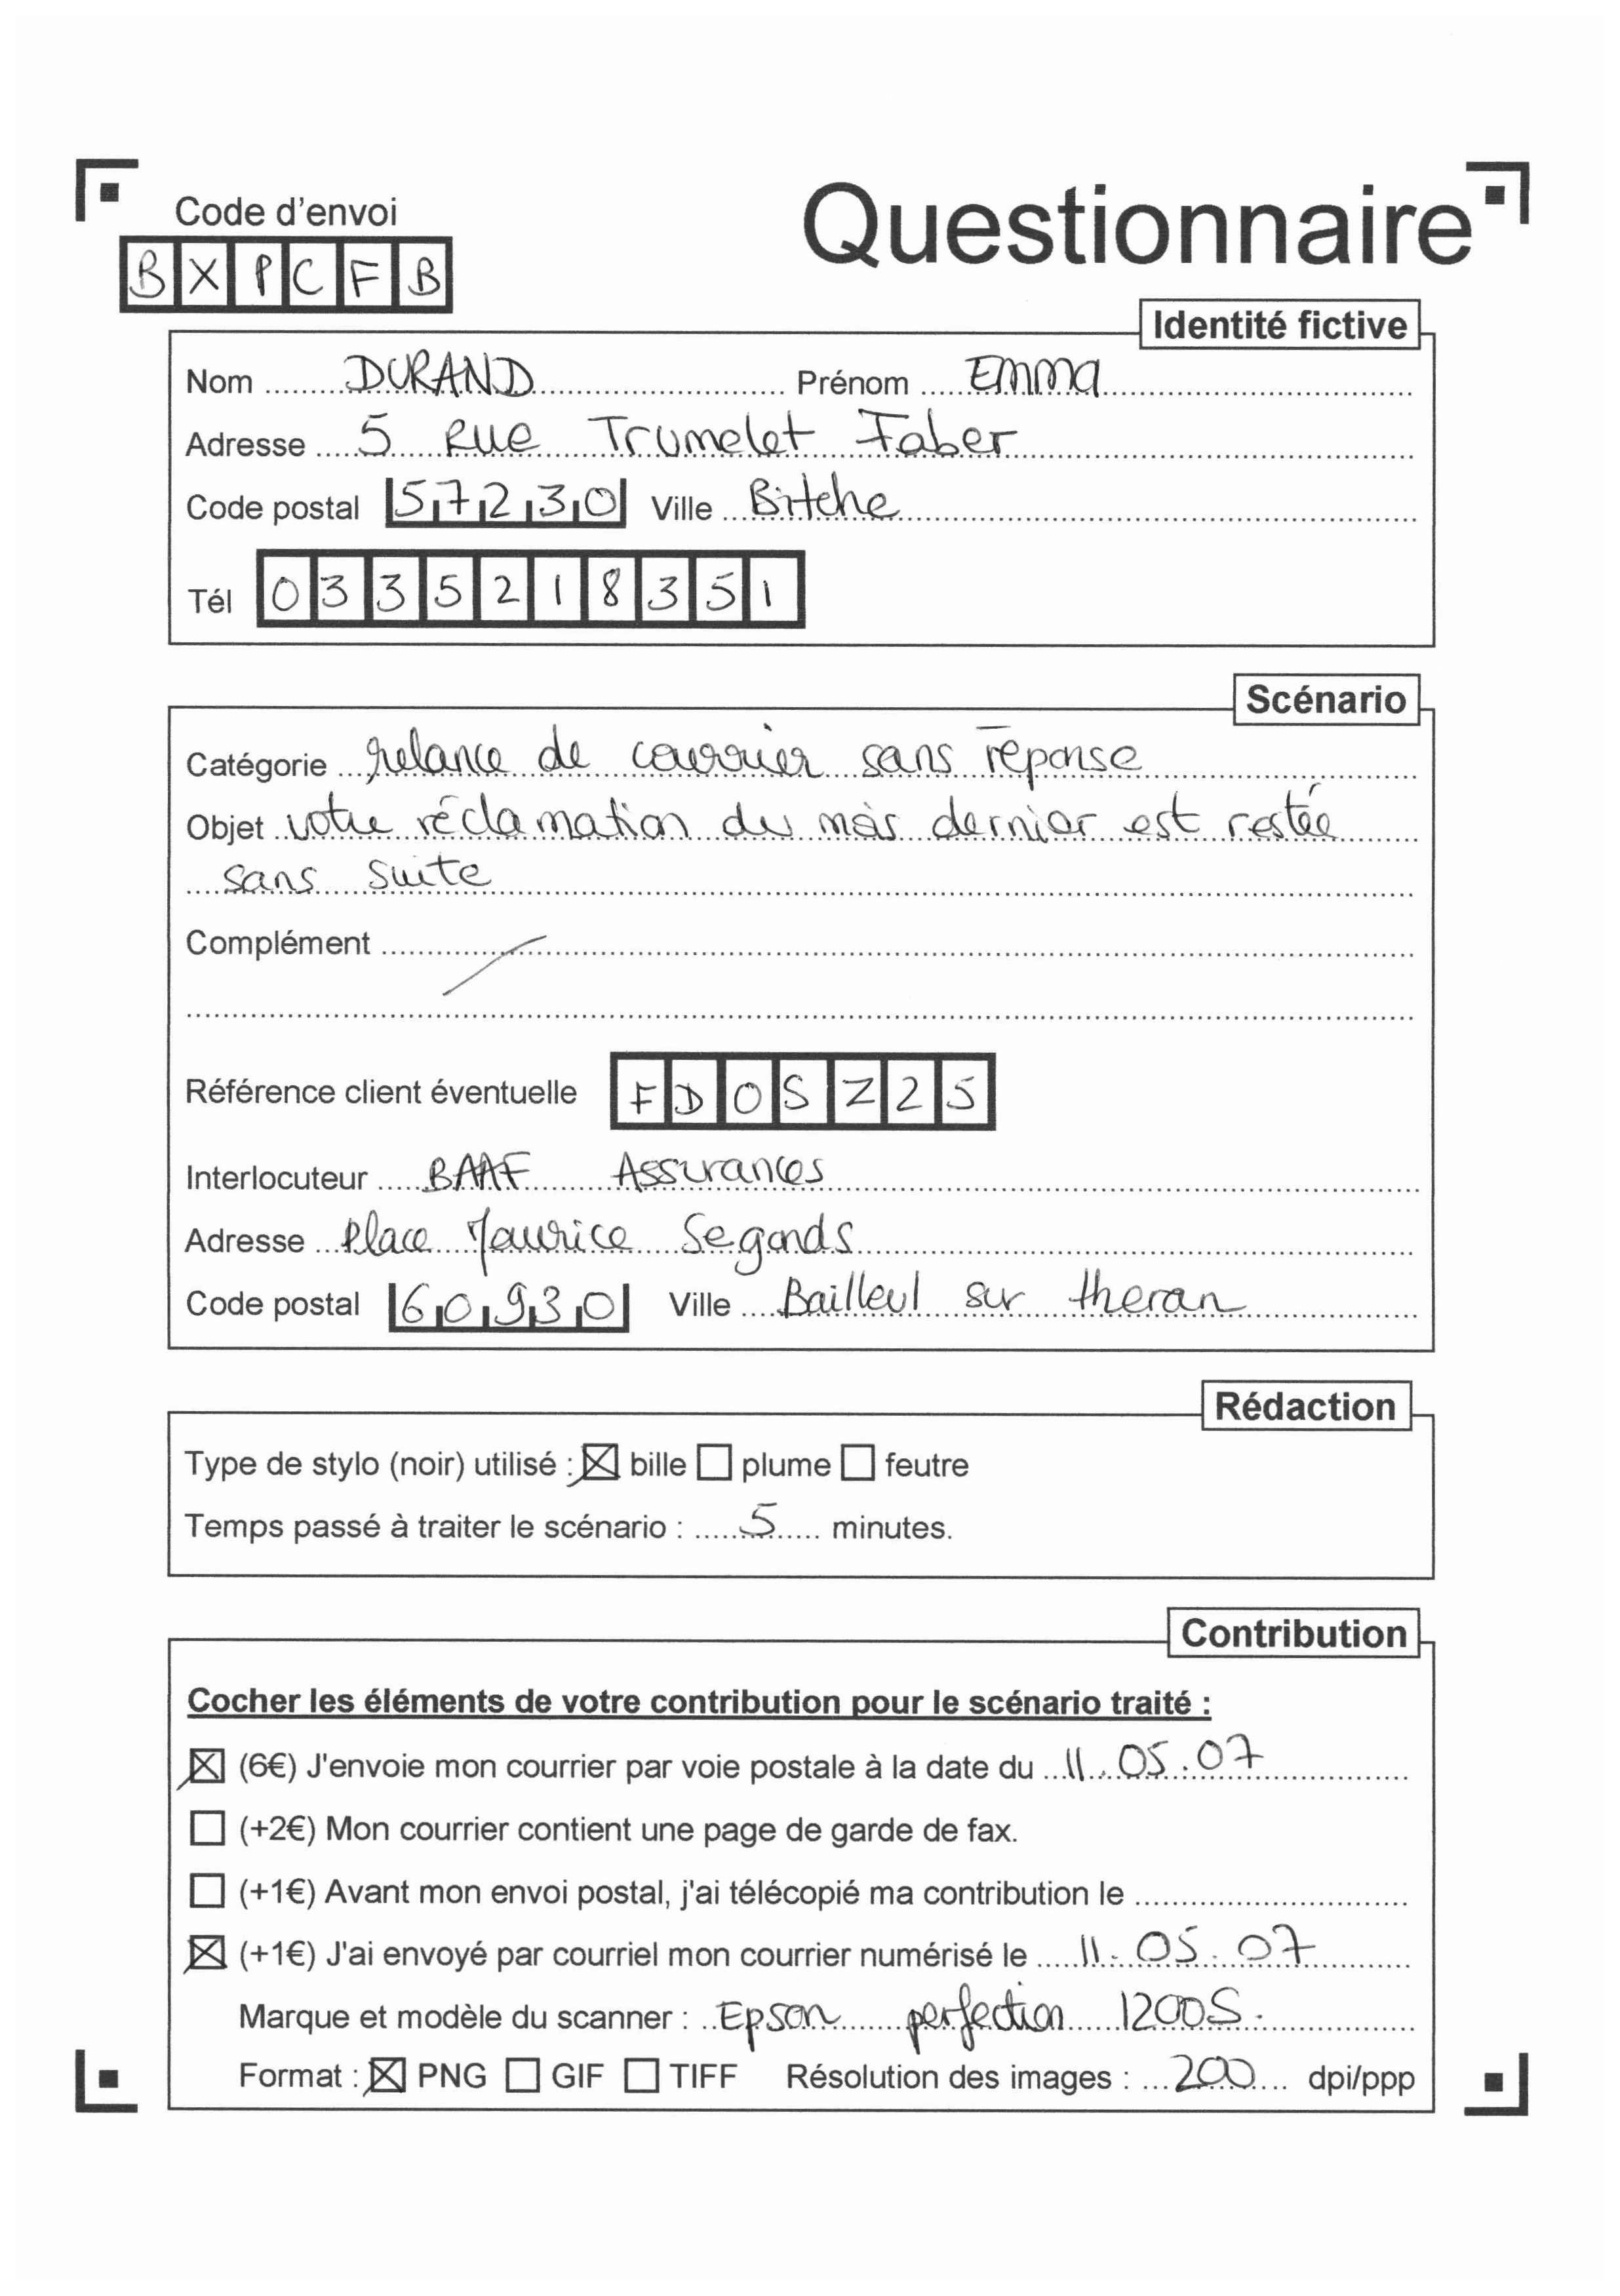 Code d'envoi
Questionnaire
BXPCFB
Identité fictive
Nom DURAND Prénom Emma
Adresse 5 Rue Trumelet Faber
Code postal 57230 Ville Bitche
Tél 0335218351
Scénario
Catégorie relance de courrier sans reponse
Objet votre réclamation du mois dernier est restée
sans suite
Complément
Référence client éventuelle FDOSZ25
Interlocuteur BAAF Assurances
Adresse Place Maurice Segonds
Code postal 60930 Ville Bailleul sur theran
Rédaction
Type de stylo (noir) utilisé : ☒ bille ☐ plume ☐ feutre
Temps passé à traiter le scénario : 5 minutes.
Contribution
Cocher les éléments de votre contribution pour le scénario traité :
☒ (6€) J'envoie mon courrier par voie postale à la date du 11.05.07
☐ (+2€) Mon courrier contient une page de garde de fax.
☐ (+1€) Avant mon envoi postal, j'ai télécopié ma contribution le
☒ (+1€) J'ai envoyé par courriel mon courrier numérisé le 11.05.07
Marque et modèle du scanner : Epson perfection 1200S.
Format : ☒ PNG ☐ GIF ☐ TIFF Résolution des images : 200 dpi/ppp